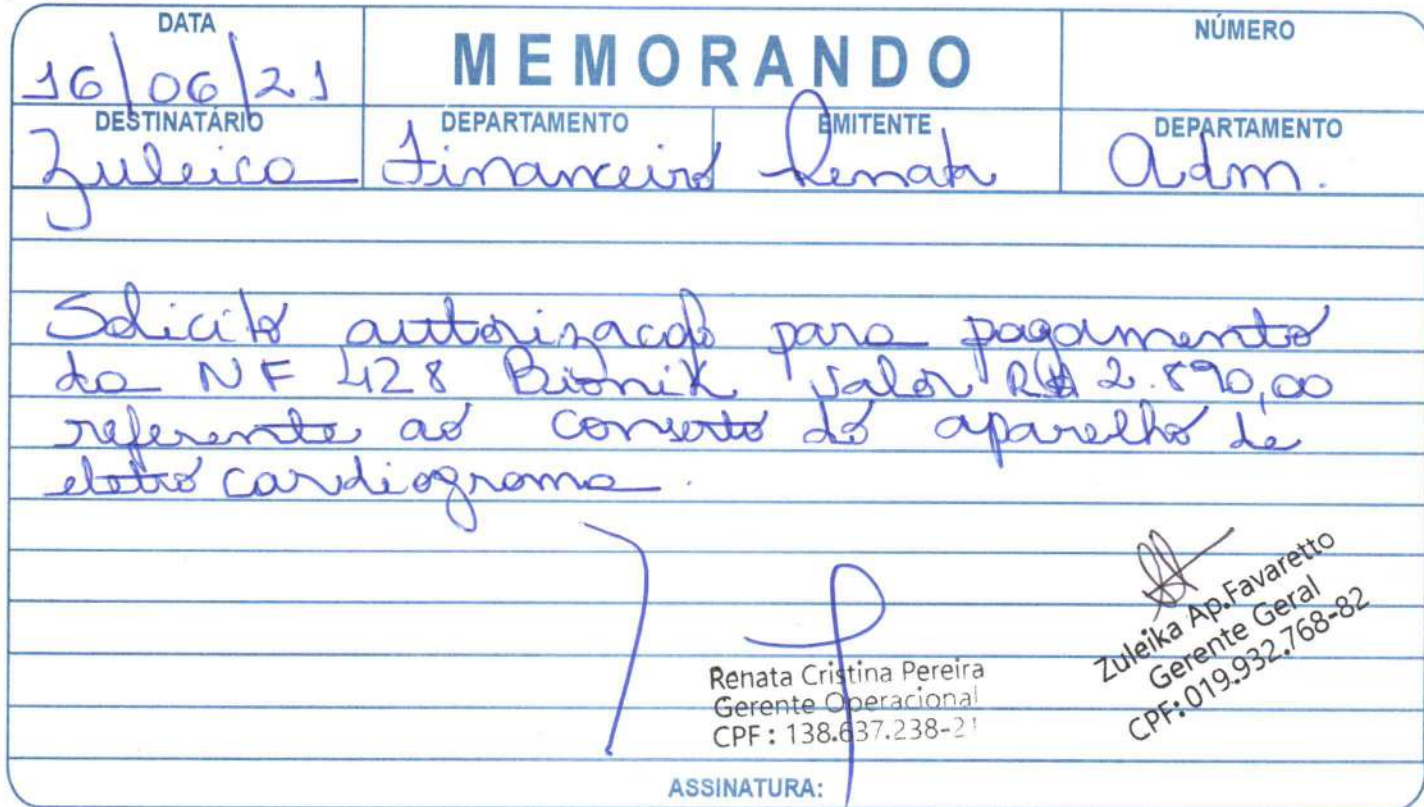 DATA
16/06/21
MEMORANDO
NÚMERO
DESTINATÁRIO
Zuleica
DEPARTAMENTO
Financeiro
EMITENTE
Renata
DEPARTAMENTO
Adm.
Solicito autorizacao para pagamento
da NF 428 Bionik valor R$ 2.890,00
referente ao conserto do aparelho de
eletro cardiograma.
Renata Cristina Pereira
Gerente Operacional
CPF: 138.637.238-21
Zuleika Ap.Favaretto
Gerente Geral
CPF: 019.932.768-82
ASSINATURA: